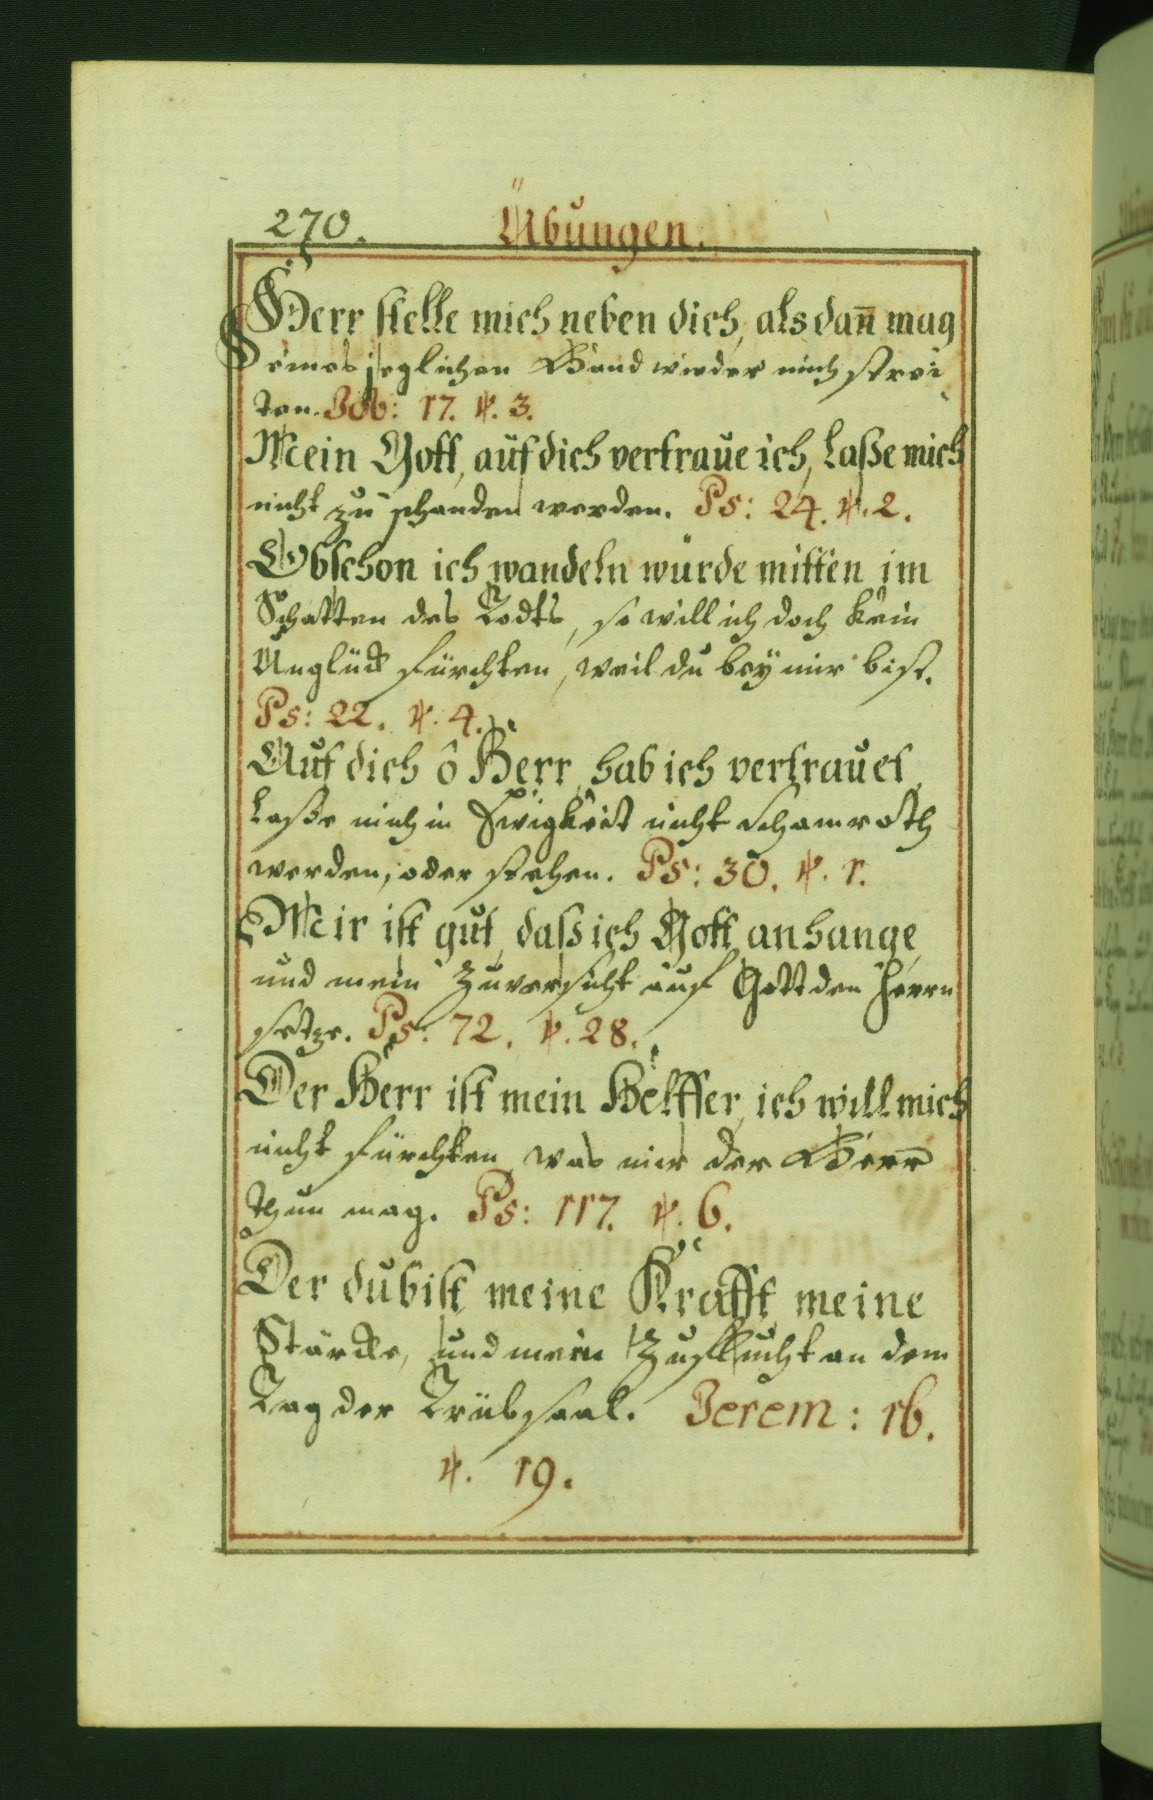 270. Übungen.
Herr stelle mich neben dich, als dan̄ mag
eines jeglichen Hand wieder mich strei
ten. Job: 17. ℣. 3.
Mein Gott, auf dich vertraue ich, laße mich
nicht zu schanden werden. Ps: 24. ℣. 2.
Obschon ich wandeln würde mitten im
Schatten des Todts, so will ich doch kein
Unglück fürchten, weil du bey mir bist.
Ps: 22. ℣. 4.
Auf dich ô Herr, hab ich vertrauet,
laße mich in Ewigkeit nicht schamroth
werden, oder stehen. Ps: 30. ℣. 1.
Mir ist gut, daß ich Gott anhange,
und mein Zuversicht auf Gott den Herrn
setze. Ps: 72. ℣. 28.
Der Herr ist mein Helffer, ich will mich
nicht fürchten, was mir der
thun mag. Ps: 117. ℣. 6.
Der du bist meine Krafft, meine
Stärcke, und mein Zuflucht an dem
Tag der Trübsaal. Jerem: 16.
℣. 19.